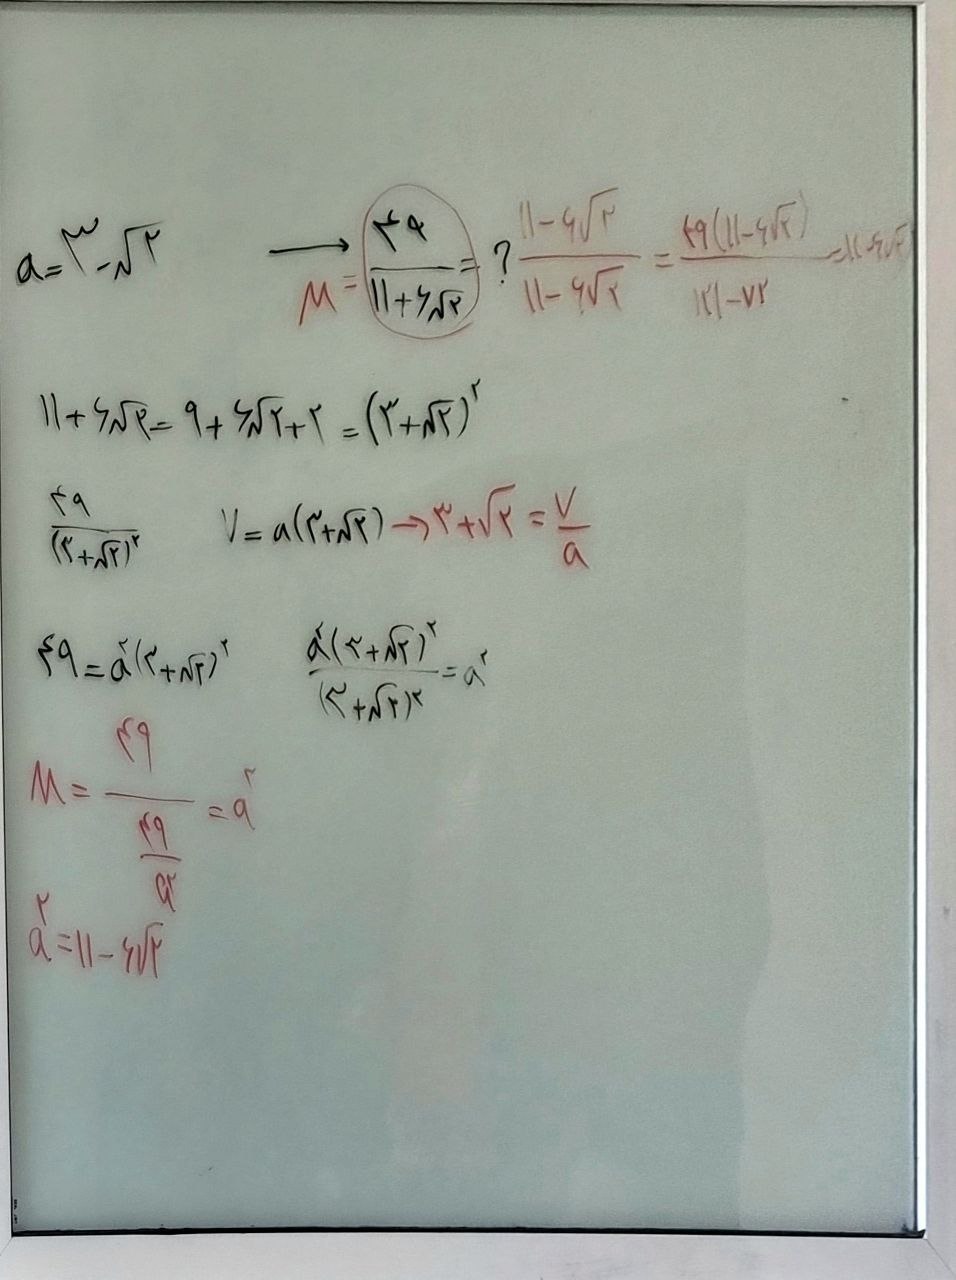 a = ۳ - √۲ → M = ۴۹/(۱۱+۶√۲) = ? (۱۱-۶√۲)/(۱۱-۶√۲) = ۴۹(۱۱-۶√۲)/(۱۲۱-۷۲) = ۱۱-۶√۲
۱۱+۶√۲ = ۹+۶√۲+۲ = (۳+√۲)^۲
۴۹/(۳+√۲)^۲ ۷ = a(۳+√۲) → ۳+√۲ = ۷/a
۴۹ = a^۲(۳+√۲)^۲ a^۲(۳+√۲)^۲/(۳+√۲)^۲ = a^۲
M = ۴۹/(۴۹/a^۲) = a^۲
a^۲ = ۱۱-۶√۲